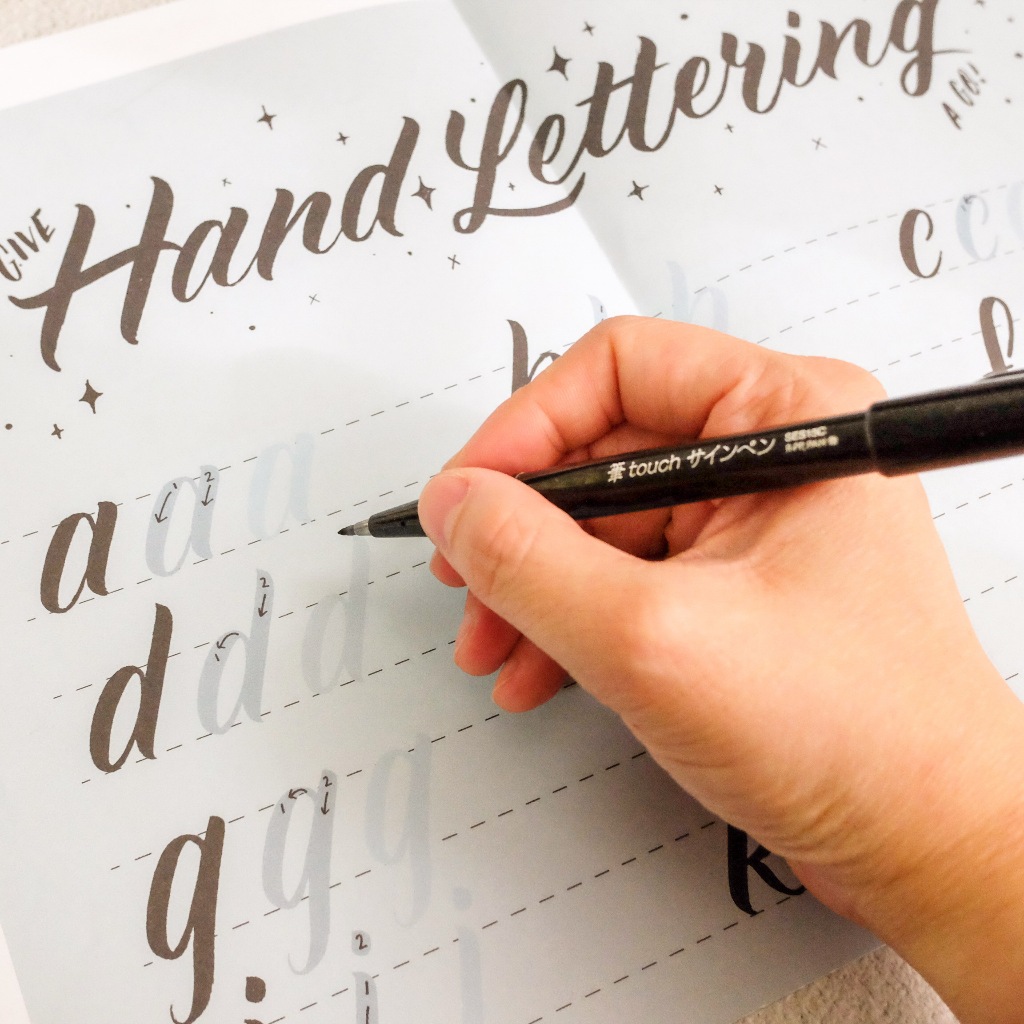 GIVE
Hand Lettering
A GO!
c c
b b
a a a
筆touch サインペン
SES15C
d d d
g g g
k